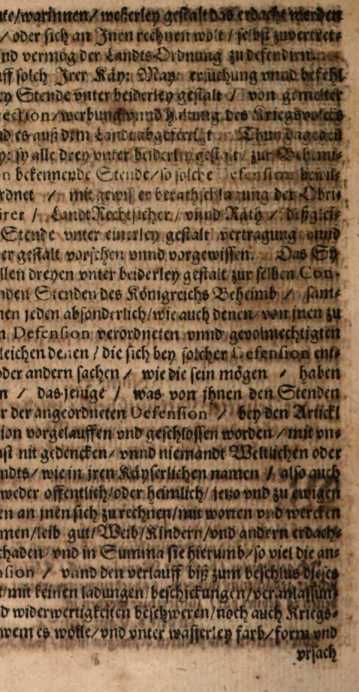 warinnen/ welcherley gestalt das erdacht werden
/ oder sich an Jnen rechnen wolt / selbst zuvertret-
nd vermög der Landts-Ordnung zu defendirn
uff solch Jrer Käy: May: ersuchung vnnd befehl
ey Stende vnter beiderley gestalt / von gemelter
werbung vnnd haltung des Kriegsvolcks
y: sy alle drey vnter beiderley gestalt / zur
n bekennende Stende / so solche Defension
rdnet / mit gewisser berathschlagung der Obri-
irer / LandtRechtsitzer / vnnd Räth / dißgleich-
Stende vnter einerley gestalt vertragung vnnd
er gestalt vorsehen vnnd vorgewissen. Das Sy
llen dreyen vnter beiderley gestalt zur selben Con-
nden Stenden des Königreichs Beheimb / sam-
nen jeden absonderlich / wie auch denen von jnen zu
n Defension verordneten vnnd gevolmechtigten
leichen denen / die sich bey solcher Defension ent-
oder andern sachen / wie die sein mögen / haben
n / das jenige / was von jhnen den Stenden
r der angeordneten Defension / bey den Artickl
ion vorgelauffen vnd geschlossen worden / mit vn-
nst nit gedencken / vnnd niemandt Weltlichen oder
ndts / wie in jren Käyserlichen namen / also auch
weder offentlich / oder heimlich / jetzo vnd zu ewigen
en an jnen sich zu rechnen / mit worten vnd wercken
men / leib gut / Weib / Kindern / vnd andern erdach-
chaden / vnd in Summa sie hierumb / so viel die an-
nsion / vnnd den verlauff biß zum beschlus dieses
t / mit keinen ladungen / beschickungen / veranlassun-
d widerwertigkeiten beschweren / noch auch Kriegs-
wem es wölle / vnd vnter wasserley farb / form vnd
vrsach